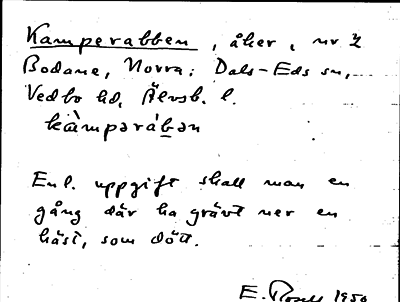 Kamperabben, åker, nr 2
Bodane, Norra; Dals-Eds sn,
Vedbo hd, Älvsb. l.
kàmpəràbən
Enl. uppgift skall man en
gång där ha grävt ner en
häst, som dött.
E. 1950